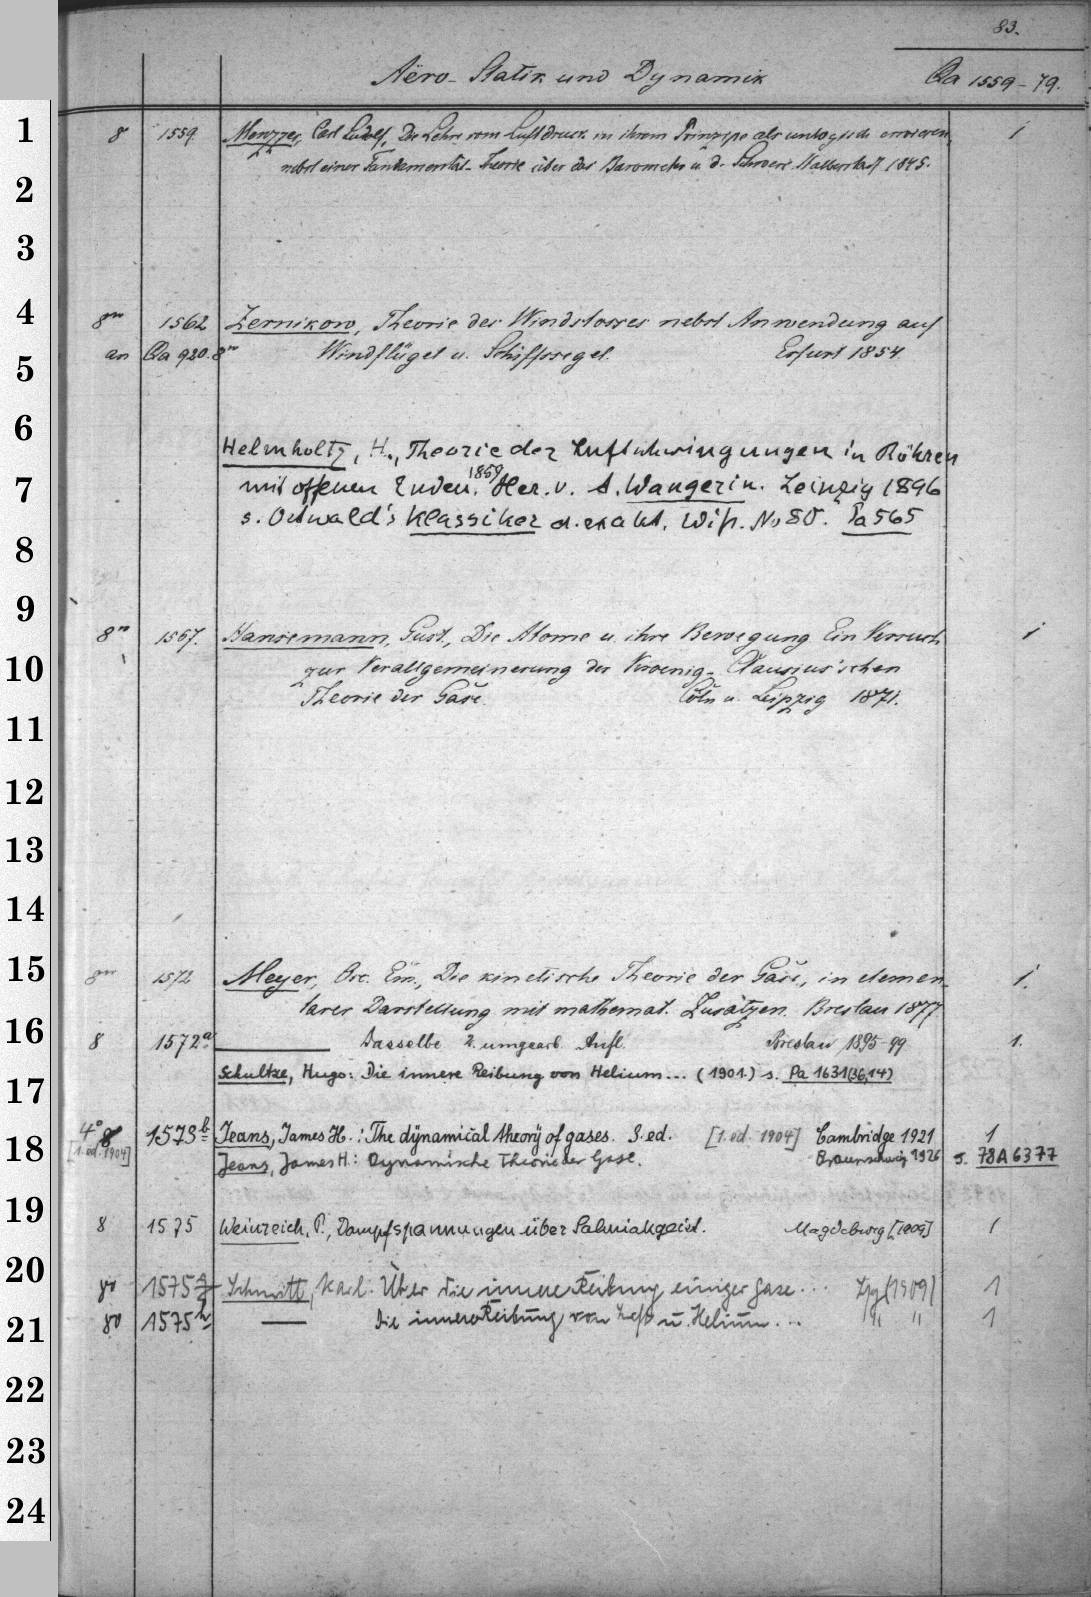 83.
Aëro-Statik und Dynamik Qa 1559-79.
1
8 1559 Menzzer, Carl Ludolf, Die Lehre vom Luftdruck in ihrem Prinzipe als unlogisch erwiesen, 1
nebst einer Fundamental-Theorie über das Barometer u. d. Schwere. Halberstadt 1845.
2
3
4
8vo 1562 Zernikow, Theorie des Windstosses nebst Anwendung auf
an Qa 920. 8vo Windflügel u. Schiffssegel. Erfurt 1854
5
6
Helmholtz, H., Theorie der Luftschwingungen in Röhren
7
mit offenen Enden. 1859 Her. v. A. Wangerin. Leipzig 1896
s. Ostwald's Klassiker d. exakt. Wiss. No 80. Pa 565
8
9
8vo 1567. Hansemann, Gust., Die Atome u. ihre Bewegung Ein Versuch 1
10
zur Verallgemeinerung der Kroenig-Clausius'schen
Theorie der Gase. Cöln u. Leipzig 1871.
11
12
13
14
15
8vo 1572 Meyer, Osc. Em., Die kinetische Theorie der Gase, in elemen- 1.
tarer Darstellung mit mathemat. Zusätzen. Breslau 1877
16
8 1572a Dasselbe 2. umgearb. Aufl. Breslau 1895-99 1.
17
Schultze, Hugo: Die innere Reibung von Helium... (1901.) s. Pa 1631(36,14)
4° 8 1573b Jeans, James H.: The dynamical theory of gases. 3. ed. [1. ed. 1904] Cambridge 1921 1
18
[1. ed. 1904] Jeans, James H.: Dynamische Theorie der Gase. Braunschweig 1926 s. 78A6377
19
8 1575 Weinreich, P., Dampfspannungen über Salmiakgeist. Magdeburg [1909] 1
20
80 1575g Schmitt, Karl. Über die innere Reibung einiger Gase... Lpg (1909) 1
21
80 1575h Die innere Reibung von Luft u. Helium... " " 1
22
23
24